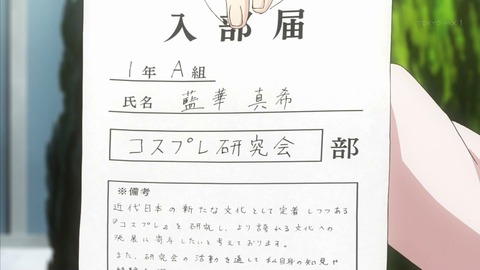 入部届
1年 A組
氏名 藍華 真希
コスプレ研究会 部
※備考
近代日本の新たな文化として定着しつつある
『コスプレ』を研究し、より誇れる文化への
発展に寄与したいと考えております。
また、研究会の活動を通して私自身の知見や